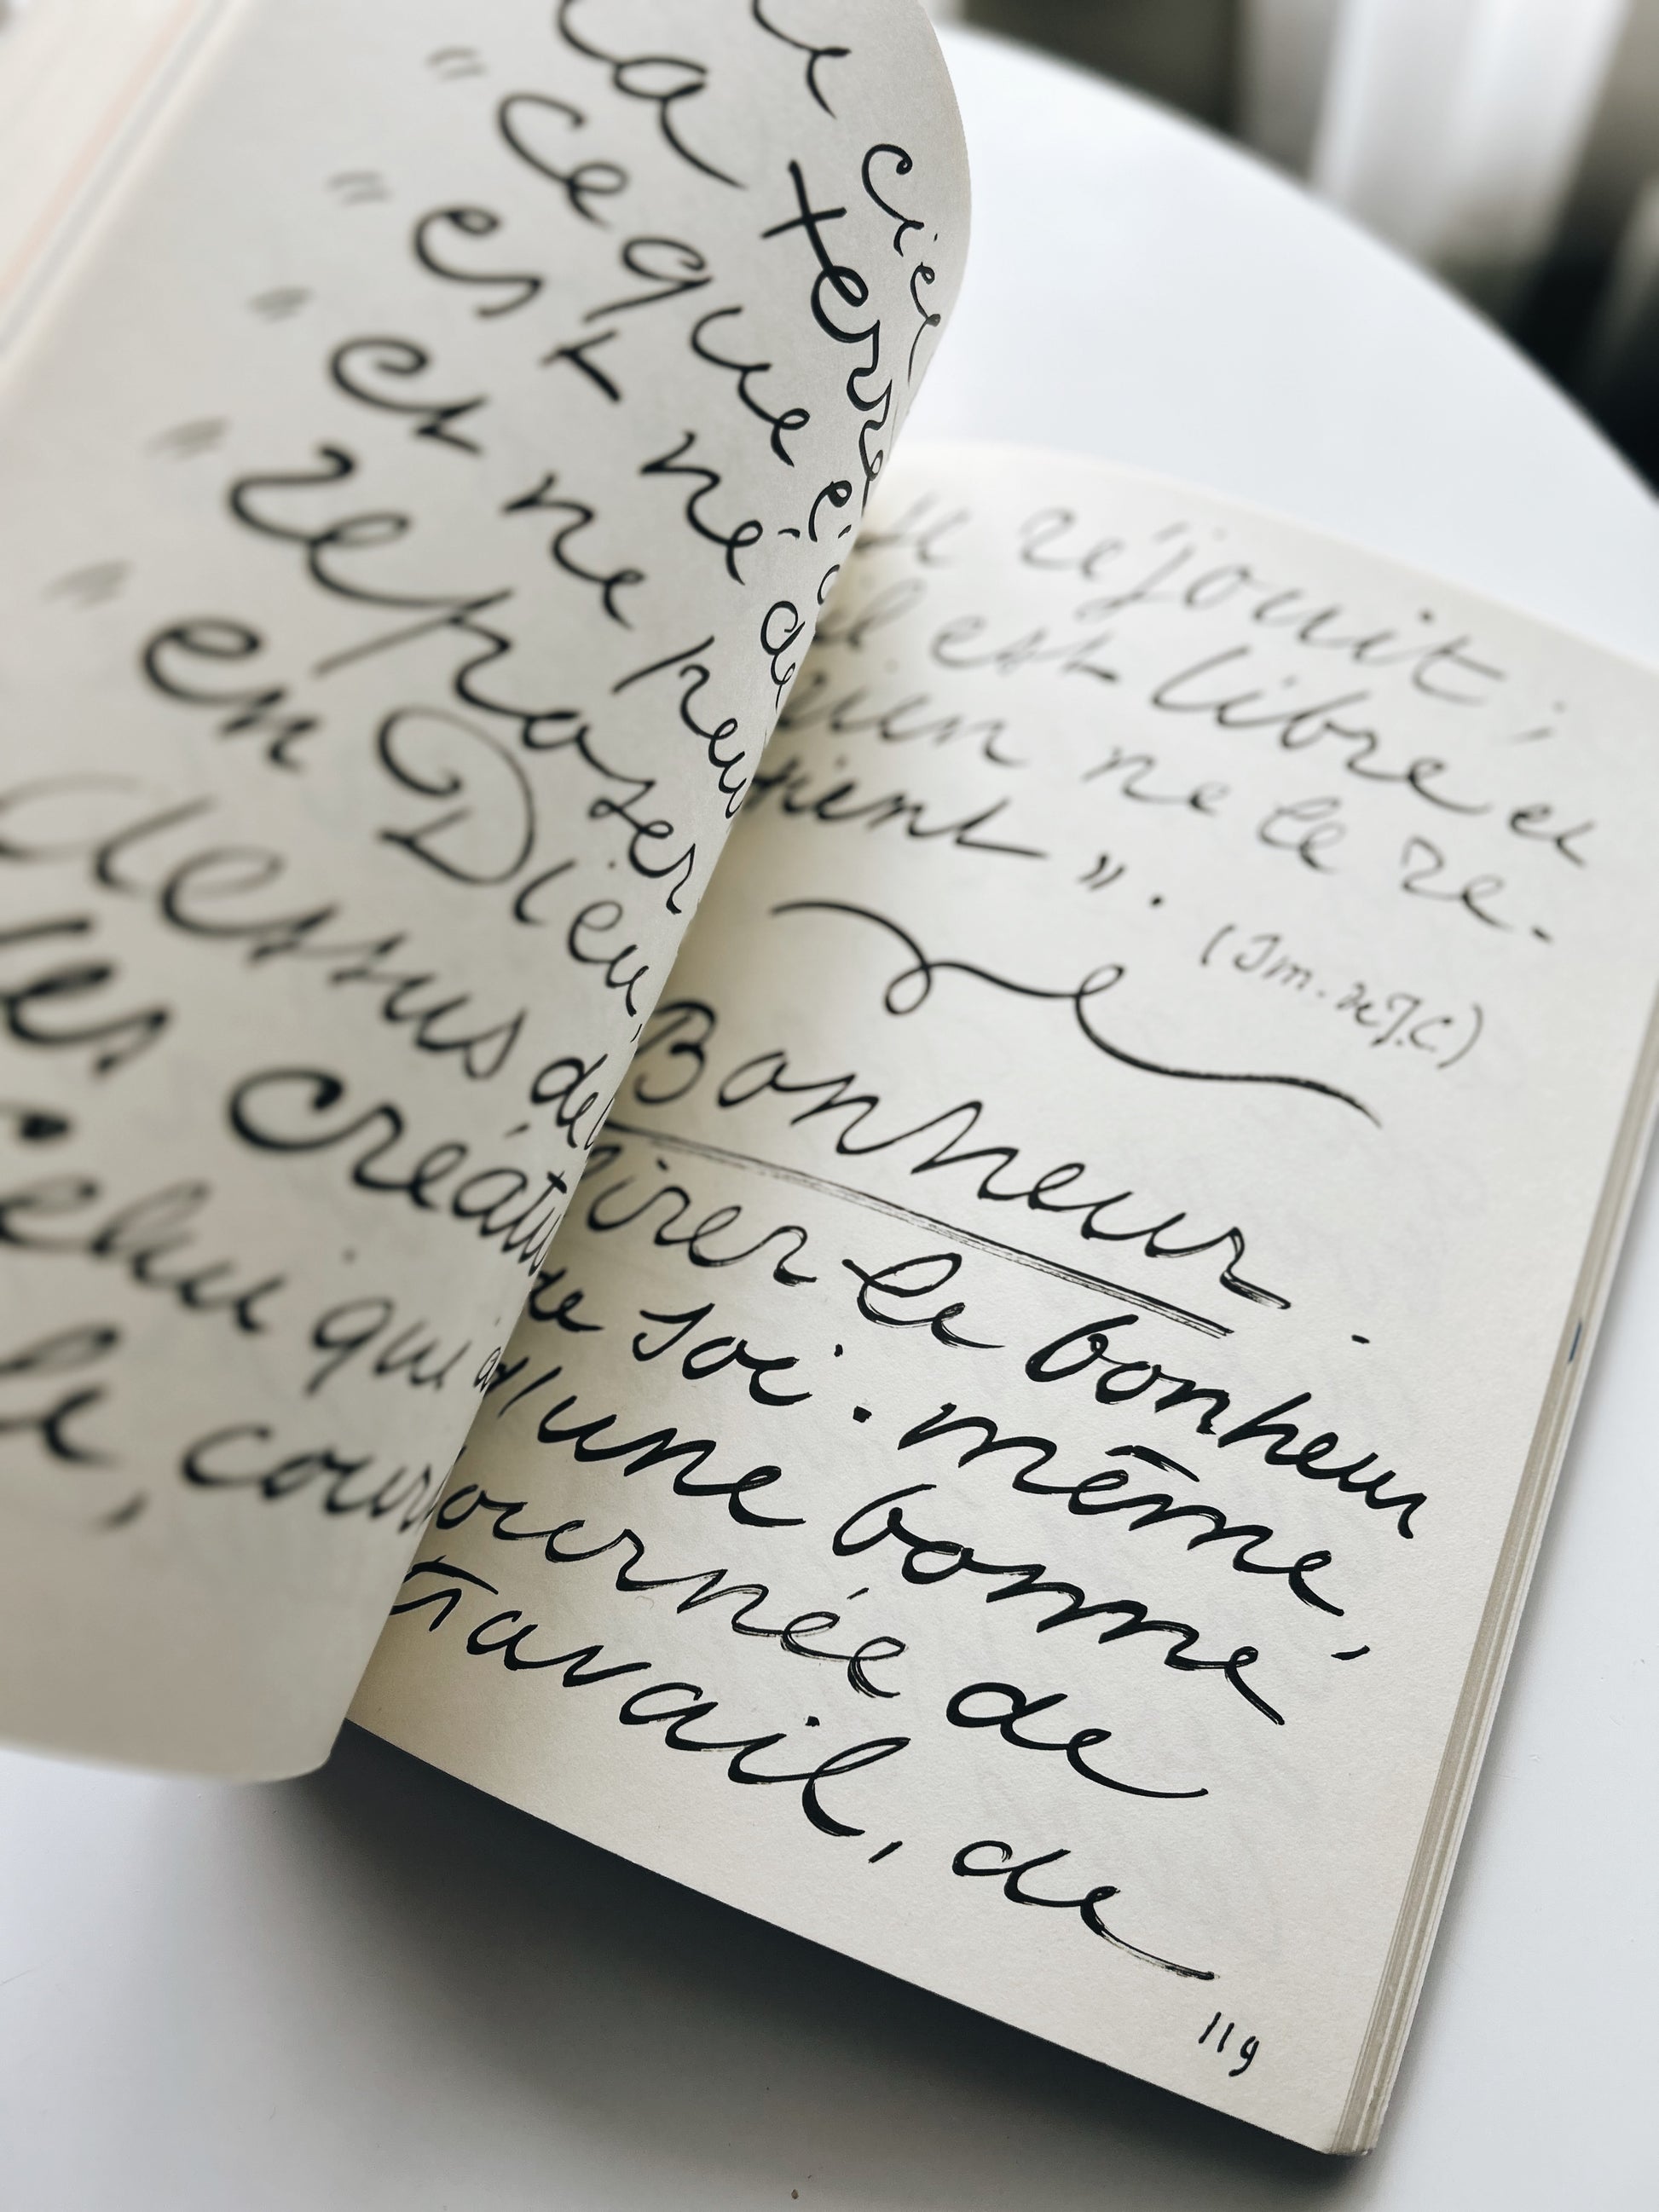 ciel
la terre
" ce que
" est né de
" et ne peu
" reposer
" en Dieu,
dessus de
les créatu
Celui qui
le, cour
,
réjouit ;
est libre et
rien ne le re-
tient ».
(Im. de J.C.)
Bonheur
irer le bonheur
de soi-même,
d'une bonne
ournée de
travail, de
119